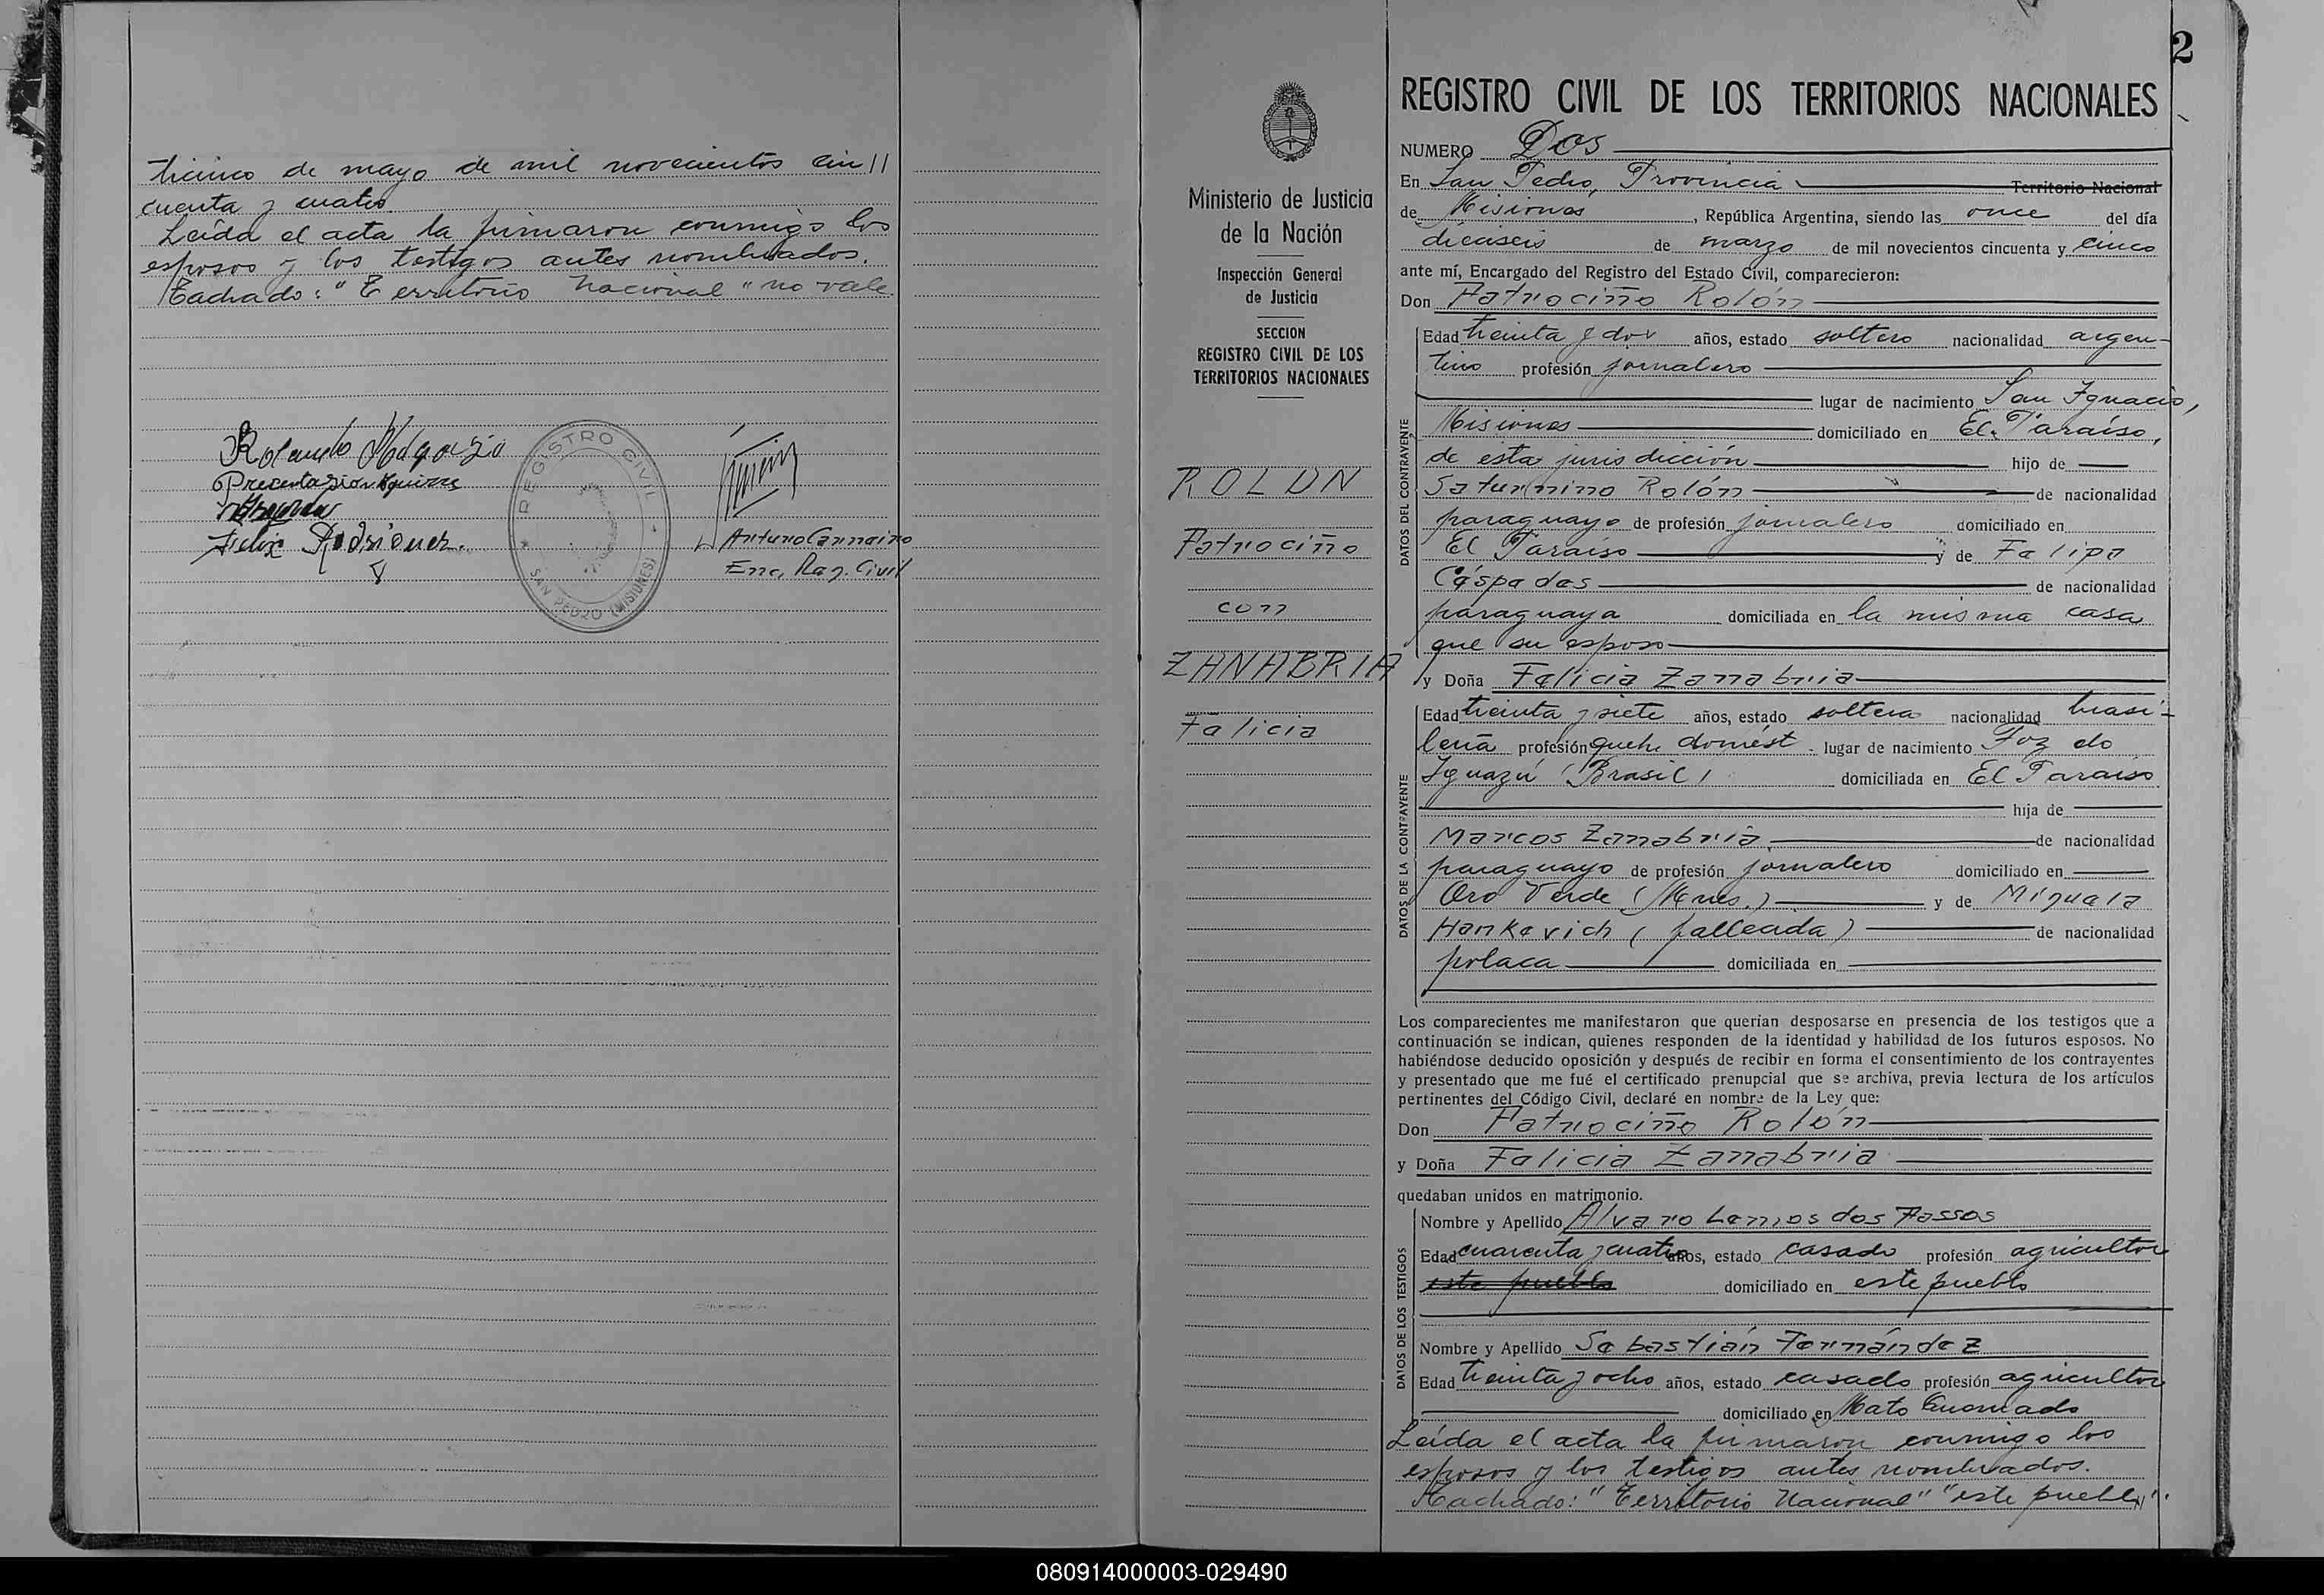 ticinco de mayo de mil novecientos cin//
cuenta y cuatro.
Leída el acta la firmaron conmigo los
esposos y los testigos antes nombrados.
Tachado: "Territorio Nacional" no vale.
Rolando
Precentazion Aguirre
Felix Rodriguez.
REGISTRO CIVIL
SAN PEDRO (MISIONES)
Arturo Cannaino
Enc. Reg. Civil
2
Ministerio de Justicia
de la Nación
Inspección General
de Justicia
SECCION
REGISTRO CIVIL DE LOS
TERRITORIOS NACIONALES
ROLON
Patrociño
con
ZANABRIA
Felicia
REGISTRO CIVIL DE LOS TERRITORIOS NACIONALES
NUMERO Dos
En San Pedro, Provincia Territorio Nacional
de Misiones, República Argentina, siendo las once del día
dieciseis de marzo de mil novecientos cincuenta y cinco
ante mí, Encargado del Registro del Estado Civil, comparecieron:
Don Patrociño Rolón
DATOS DEL CONTRAYENTE
Edad treinta y dos años, estado soltero nacionalidad argen-
tino profesión jornalero
lugar de nacimiento San Ignacio,
Misiones domiciliado en El Paraíso,
de esta jurisdicción hijo de
Saturnino Rolón de nacionalidad
paraguayo de profesión jornalero domiciliado en
El Paraíso y de Felipa
Céspedes de nacionalidad
paraguaya domiciliada en la misma casa
que su esposo
y Doña Felicia Zanabria
DATOS DE LA CONTRAYENTE
Edad treinta y siete años, estado soltera nacionalidad brasi-
leña profesión queh. domést. lugar de nacimiento Foz do
Iguazú (Brasil) domiciliada en El Paraíso
hija de
Marcos Zanabria de nacionalidad
paraguayo de profesión jornalero domiciliado en
Oro Verde (Mnes.) y de Miguela
Hankevich (fallecida) de nacionalidad
polaca domiciliada en
Los comparecientes me manifestaron que querían desposarse en presencia de los testigos que a
continuación se indican, quienes responden de la identidad y habilidad de los futuros esposos. No
habiéndose deducido oposición y después de recibir en forma el consentimiento de los contrayentes
y presentado que me fué el certificado prenupcial que se archiva, previa lectura de los artículos
pertinentes del Código Civil, declaré en nombre de la Ley que:
Don Patrociño Rolón
y Doña Felicia Zanabria
quedaban unidos en matrimonio.
DATOS DE LOS TESTIGOS
Nombre y Apellido Alvaro Lemos dos Passos
Edad cuarenta y cuatro años, estado casado profesión agricultor
este pueblo domiciliado en este pueblo
Nombre y Apellido Sebastián Fernández
Edad treinta y ocho años, estado casado profesión agricultor
domiciliado en Mato Quemado
Leída el acta la firmaron conmigo los
esposos y los testigos antes nombrados.
Tachado: "Territorio Nacional" "este pueblo".
080914000003-029490